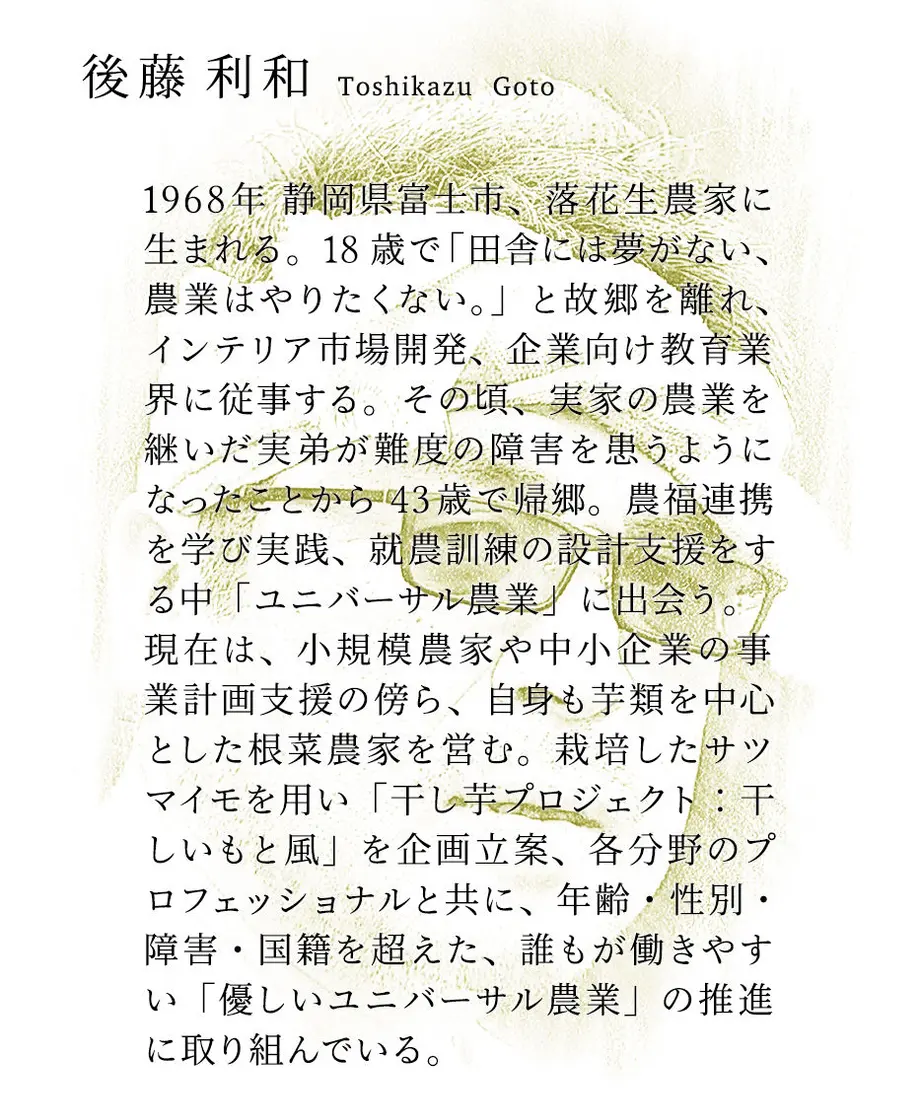 後藤 利和 Toshikazu Goto
1968年 静岡県富士市、落花生農家に
生まれる。18 歳で「田舎には夢がない、
農業はやりたくない。」と故郷を離れ、
インテリア市場開発、企業向け教育業
界に従事する。その頃、実家の農業を
継いだ実弟が難度の障害を患うように
なったことから 43歳で帰郷。農福連携
を学び実践、就農訓練の設計支援をす
る中「ユニバーサル農業」に出会う。
現在は、小規模農家や中小企業の事
業計画支援の傍ら、自身も芋類を中心
とした根菜農家を営む。栽培したサツ
マイモを用い「干し芋プロジェクト：干
しいもと風」を企画立案、各分野のプ
ロフェッショナルと共に、年齢・性別・
障害・国籍を超えた、誰もが働きやす
い「優しいユニバーサル農業」の推進
に取り組んでいる。